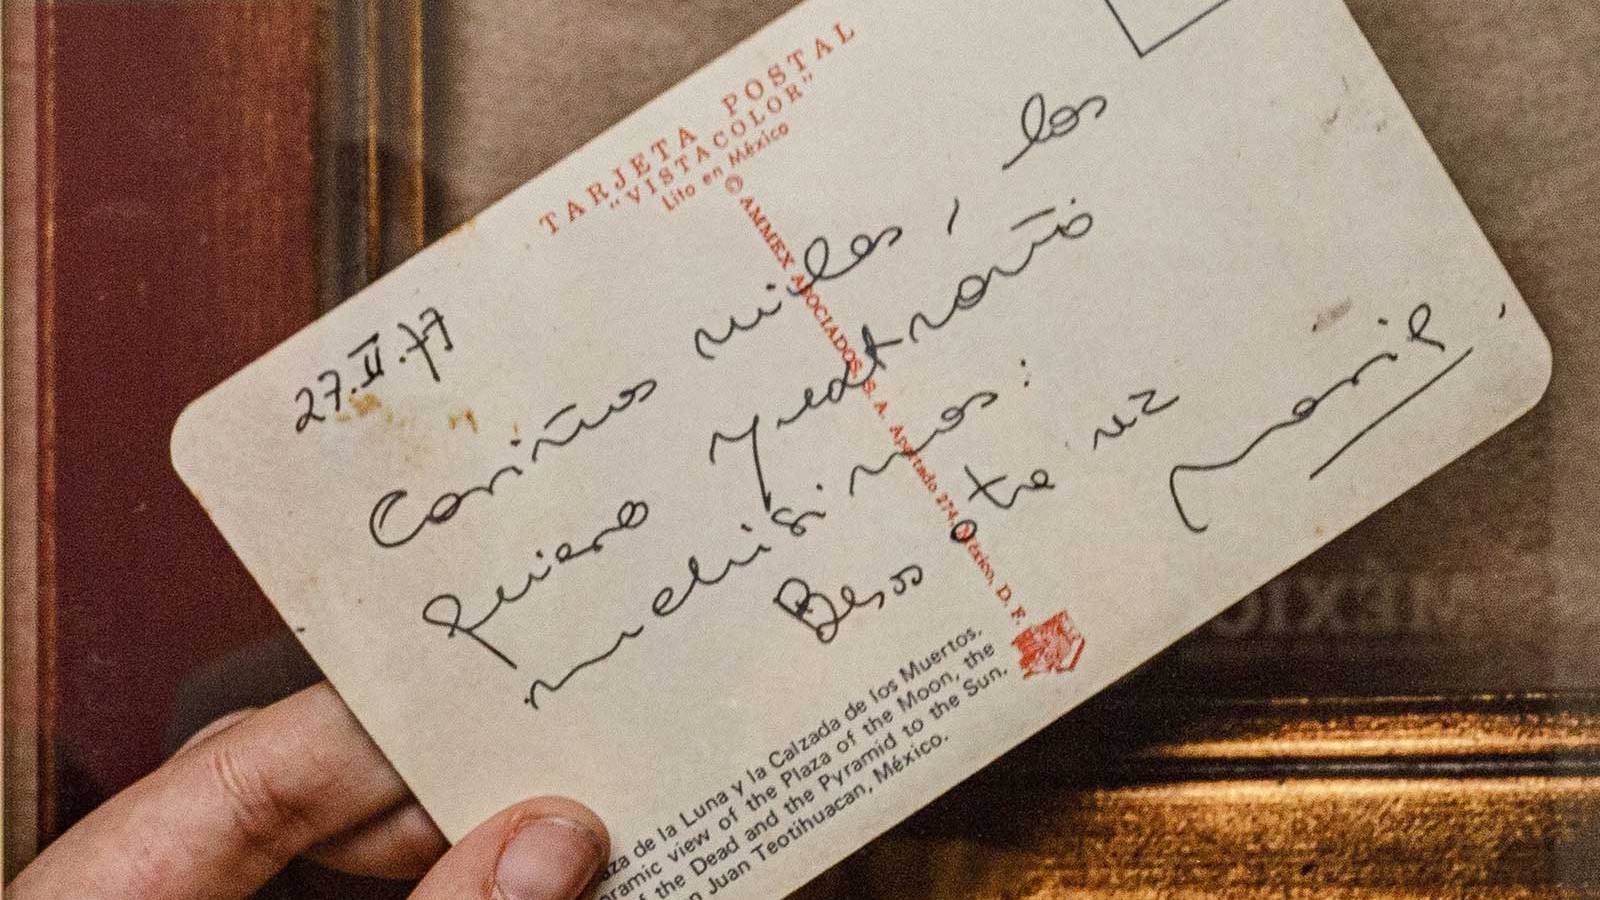 TARJETA POSTAL
"VISTACOLOR"
Lito en México
© AMMEX ASOCIADOS, S. A. Apartado 274, México, D. F.
27.II.77
Cariños miles, los
quiero y extraño
muchisimos:
Besos otra vez
aza de la Luna y la Calzada de los Muertos.
oramic view of the Plaza of the Moon, the
f the Dead and the Pyramid to the Sun.
n Juan Teotihuacan, México.